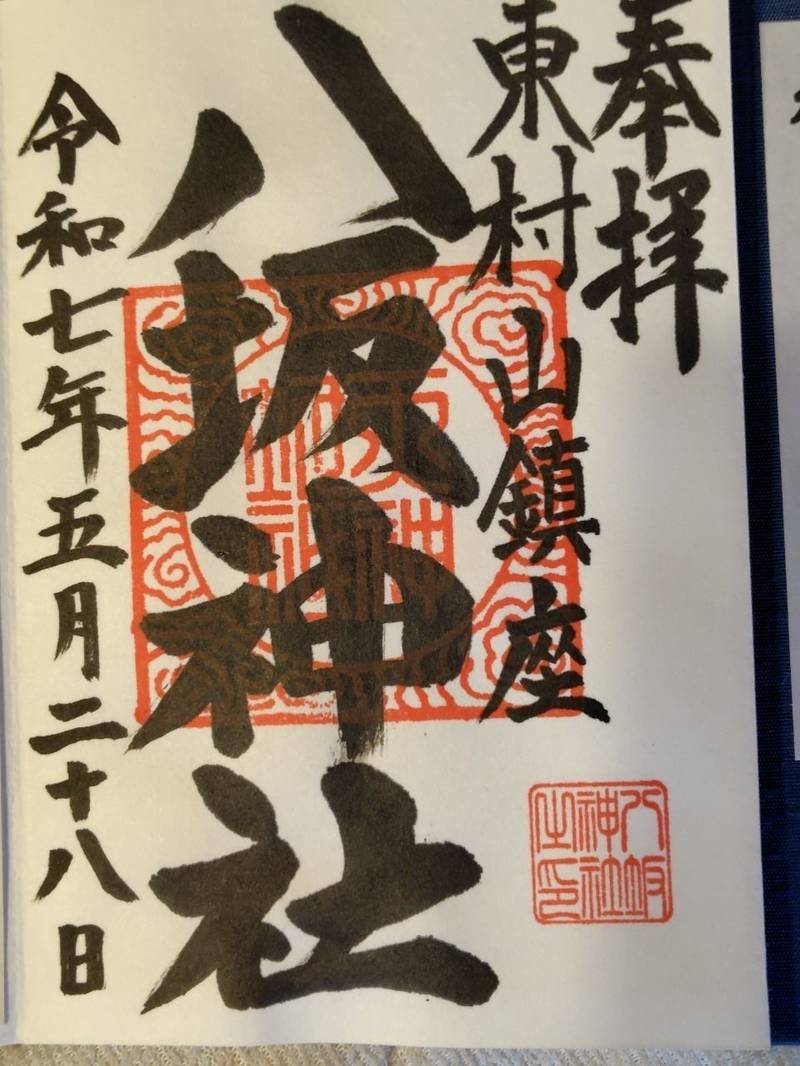 奉拝
東村山鎮座
八坂神社
令和七年五月二十八日
八坂
神社
之印